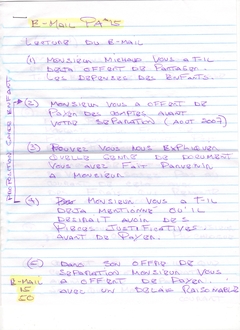 E-MAIL PA 15
LECTURE DU E-MAIL
(1) MONSIEUR MICHAUD VOUS A T-IL
DEJA OFFERT DE PARTAGER
LES DEPENSES DES ENFANTS.
(2) MONSIEUR VOUS A OFFERT DE
PAYER DES COMPTES AVANT
VOTRE SEPARATION (AOUT 2007)
(3) POUVEZ VOUS NOUS EXPLIQUER
QUELLE GENRE DE DOCUMENT
VOUS AVEZ FAIT PARVENIR
A MONSIEUR
(4) MONSIEUR VOUS A T-IL
DEJA MENTIONNE QU'IL
DESIRAIT AVOIR DES
PIECES JUSTIFICATIVES
AVANT DE PAYER.
(5) DANS SON OFFRE DE
SEPARATION MONSIEUR VOUS
A OFFERT DE PAYER
AVEC UN DELAI RAISONABLE
E-MAIL
15
50
PROPOSITION CHERS ENFANT